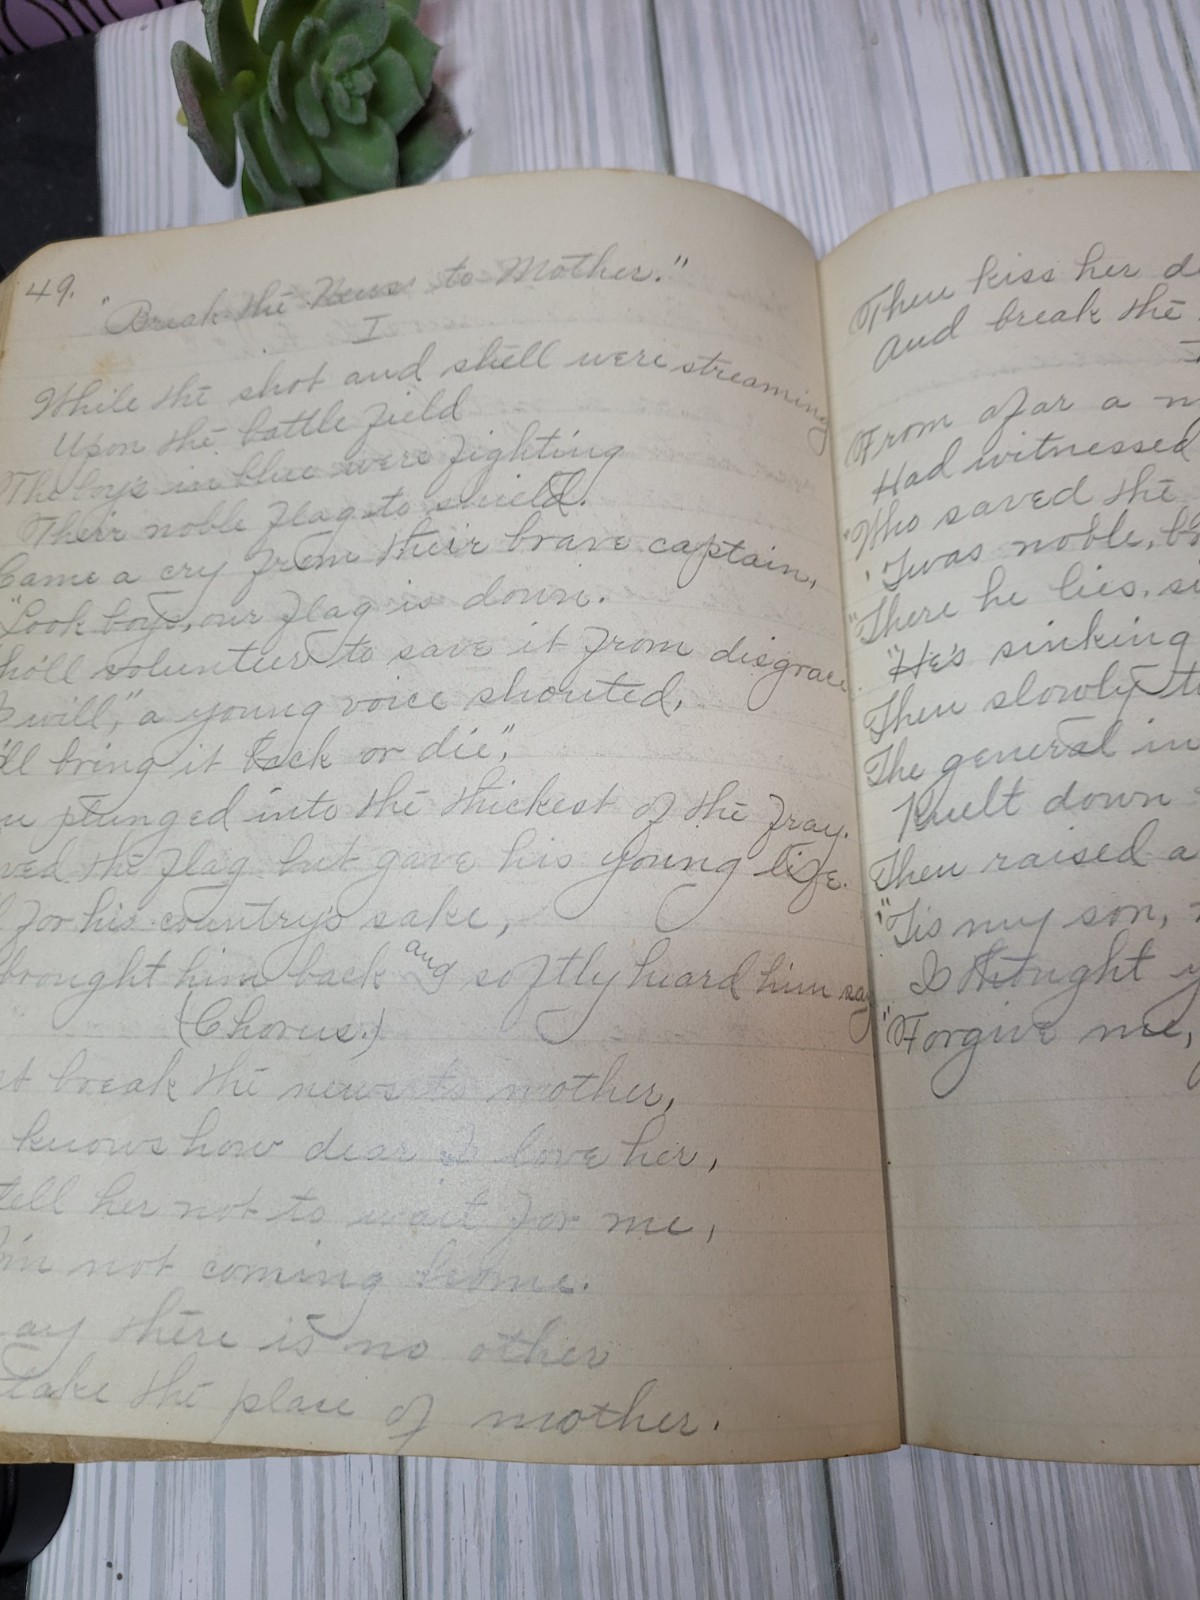 49.
"Break the News to Mother."
I
While the shot and shell were streaming
Upon the battle field
The boys in blue were fighting
Their noble flag to shield.
Came a cry from their brave captain,
"Look boys, our flag is down.
ho'll volunteer to save it from disgrace
I will," a young voice shouted,
'll bring it back or die",
plunged into the thickest of the fray.
ved the flag but gave his young life.
for his country's sake,
brought him back and softly heard him say
(Chorus.)
st break the news to mother,
knows how dear I love her,
tell her not to wait for me,
I'm not coming home.
ay there is no other
take the place of mother.
Then kiss her
And break the
From afar a
Had witnessed
"Who saved the
'Twas noble,
"There he lies,
"He's sinking
Then slowly
The general in
Knelt down
Then raised a
"'Tis my son,
I thought
"Forgive me,